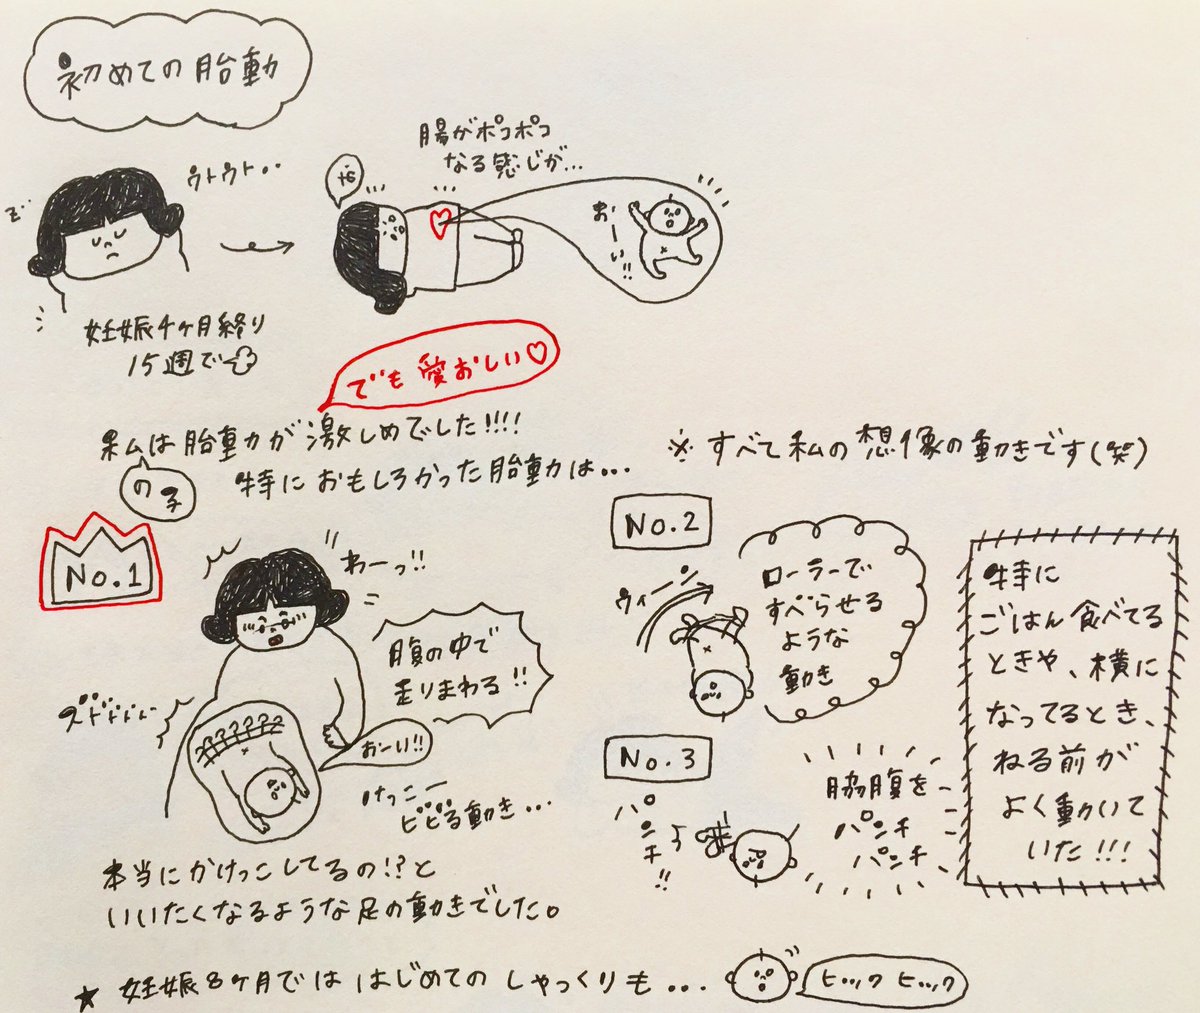 初めての胎動
z..
ウトウト..
腸がポコポコ
なる感じが...
おーーい!!
妊娠4ヶ月終り
15週で
でも愛おしい♡
私は胎動力が激しめでした!!!!
の子
特におもしろかった胎動は...
※すべて私の想像の動きです(笑)
No.1
わーっ!!
腹の中で
走りまわる!!
ズドドドド
おーい!!
けっこー
ビビる動き...
本当にかけっこしてるの!?と
いいたくなるような足の動きでした。
No.2
ウィーン
ローラーで
すべらせる
ような
動き
No.3
パンチ!!
脇腹を
パンチ
パンチ
特に
ごはん食べてる
ときや、横に
なってるとき、
ねる前が
よく動いて
いた!!!
★妊娠8ヶ月でははじめてのしゃっくりも...
ヒック ヒック